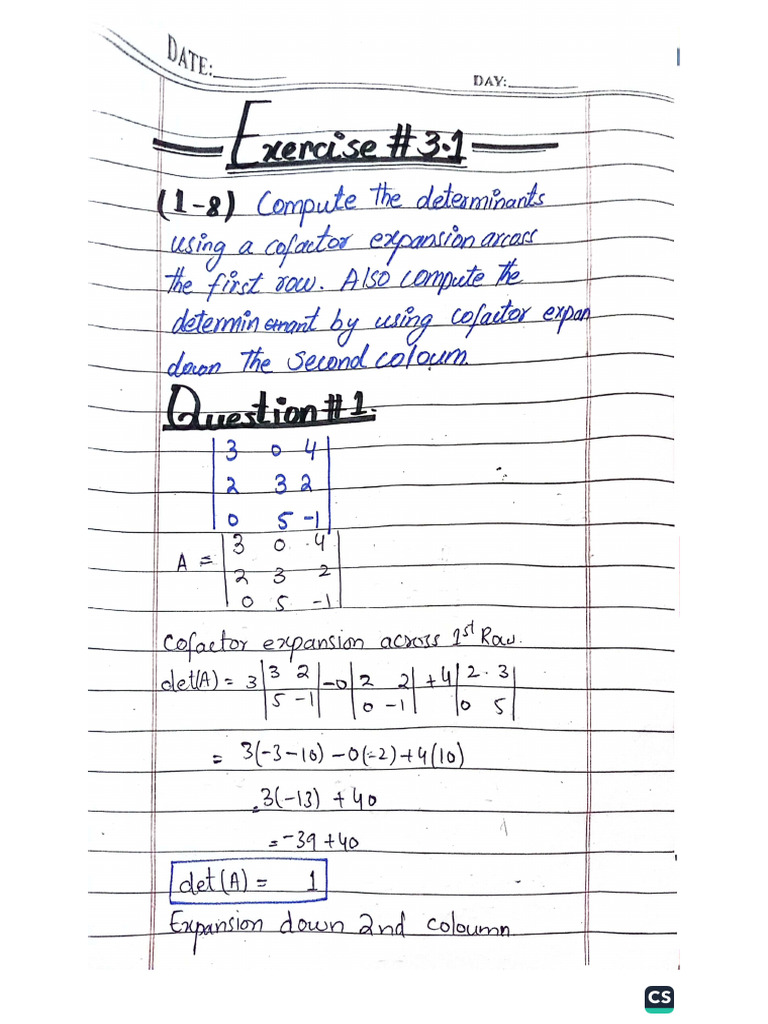 DATE:
DAY:
Exercise # 3.1
(1-8) Compute the determinants
using a cofactor expansion arcass
the first row. Also compute the
determinemant by using cofactor expan
down the second coloum.
Question # 1.
3 0 4
2 3 2
0 5 -1
A = 3 0 4
2 3 2
0 5 -1
Cofactor expansion across 1st Row.
det(A) = 3 |3 2| -0 |2 2| +4 |2 3|
|5 -1| |0 -1| |0 5|
= 3(-3-10) -0(-2)+4(10)
= 3(-13) + 40
= -39+40
det(A) = 1
Expansion down 2nd coloumn
CS